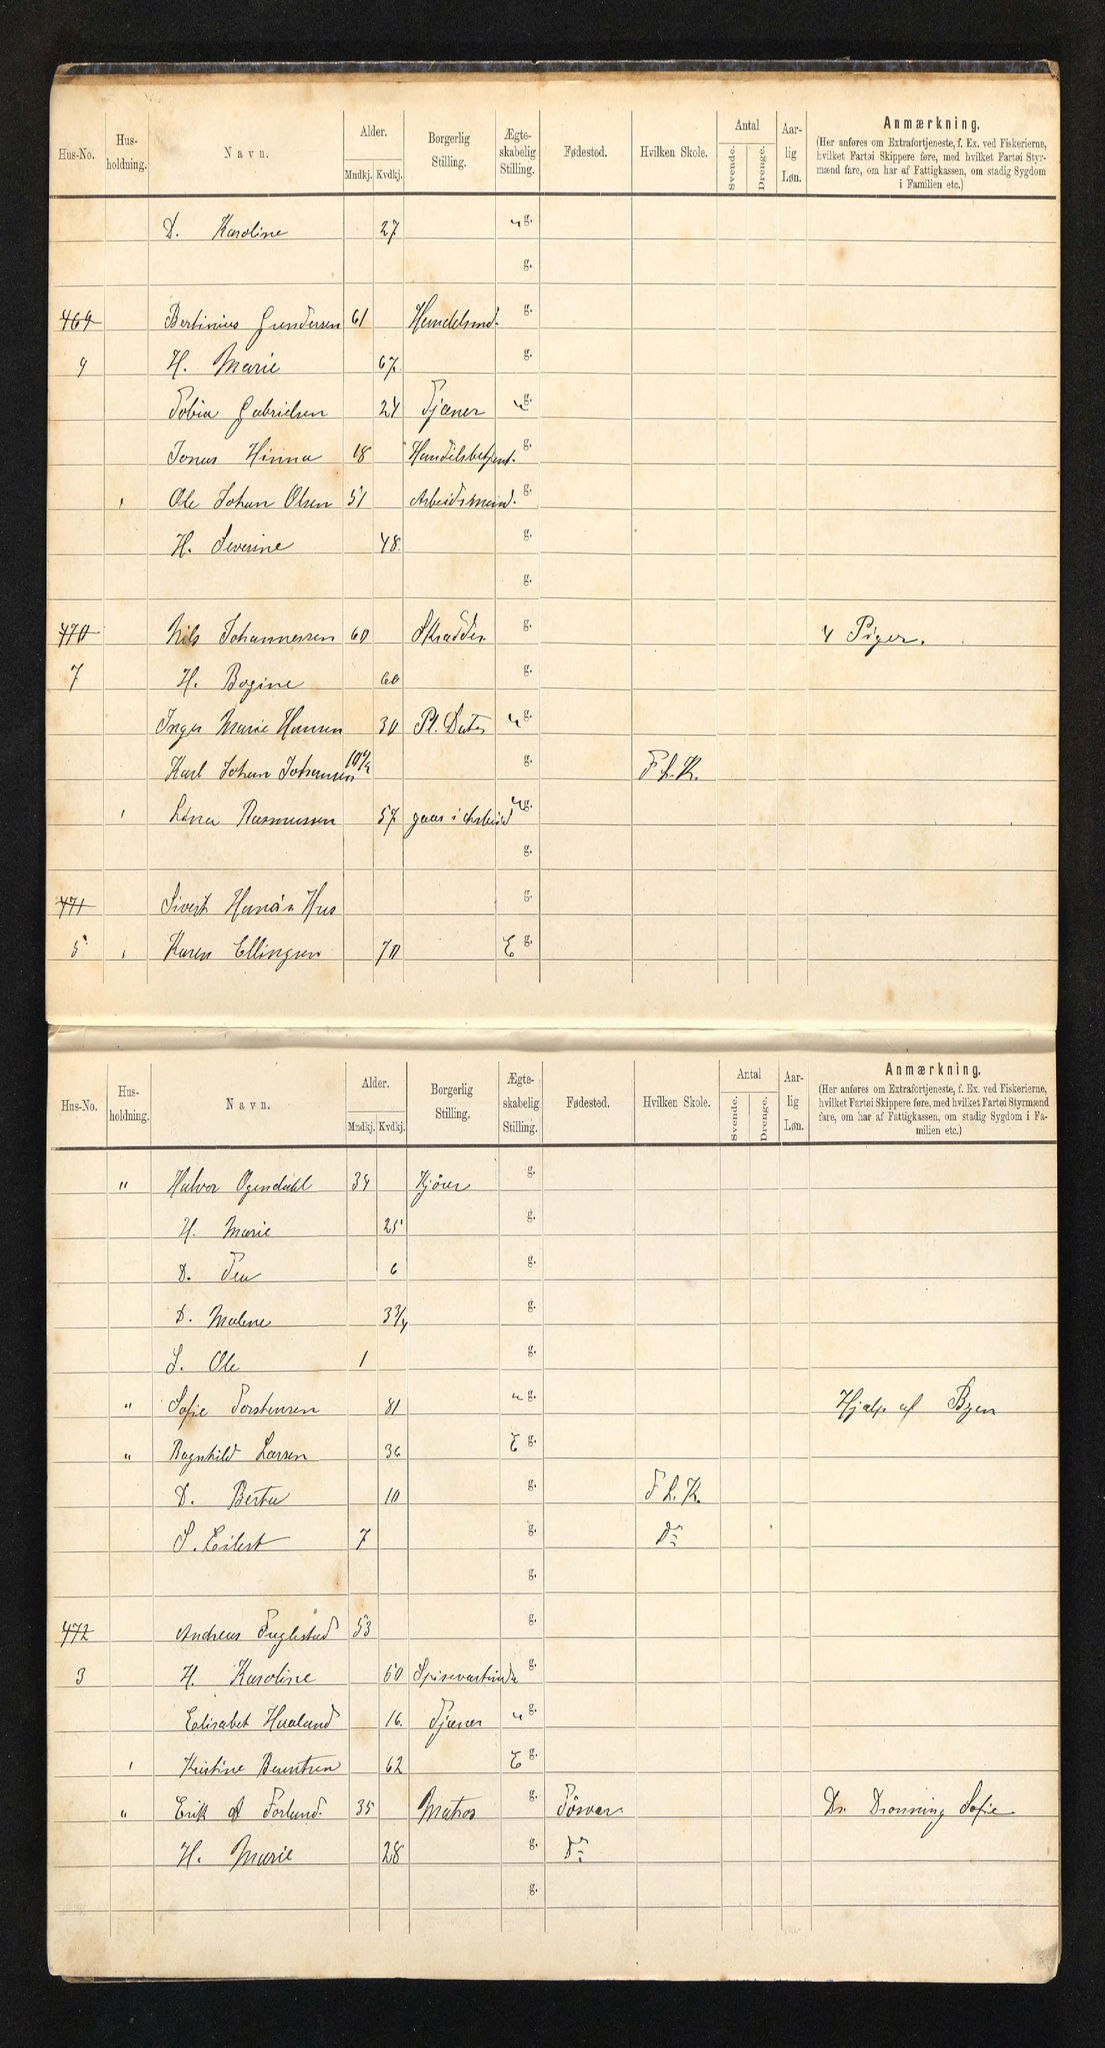 Hus-No. Hus-holdning. Navn. Alder. Mndkj. Kvdkj. Borgerlig Stilling. Ægte-skabelig Stilling. Fødested. Hvilken Skole. Antal Svende. Drenge. Aar-lig Løn. Anmærkning.
(Her anføres om Extrafortjeneste, f. Ex. ved Fiskerierne, hvilket Fartøi Skippere føre, med hvilket Fartøi Styr-mænd fare, om har af Fattigkassen, om stadig Sygdom i Familien etc.)
D. Karoline 27 u g.
g.
469 Bertinius Gundersen 61 Handelsmd. g.
9 H. Marie 67 g.
Tobia Gabrielsen 24 Tjener u g.
Jonas Hinna 18 Handelsbetjent. g.
Ole Johan Olsen 51 Arbeidsmand. g.
H. Severine 48. g.
g.
470 Nils Johannessen 60 Skradder g. 4 Piger.
7 H. Bogine 60 g.
Inger Marie Hansen 30 Pl. Dater u g.
Karl Johan Johansen 10 1/2 g. F. L. K.
Lina Rasmussen 57 gaar i Arbeid u g.
g.
471 Sivert Hana's Hus g.
5 Karen Ellingsen 70 E g.
Hus-No. Hus-holdning. Navn. Alder. Mndkj. Kvdkj. Borgerlig Stilling. Ægte-skabelig Stilling. Fødested. Hvilken Skole. Antal Svende. Drenge. Aar-lig Løn. Anmærkning.
(Her anføres om Extrafortjeneste, f. Ex. ved Fiskerierne, hvilket Fartøi Skippere føre, med hvilket Fartøi Styrmænd fare, om har af Fattigkassen, om stadig Sygdom i Fa-milien etc.)
" Halvor Ogendahl 34 Kjører g.
H. Marie 25 g.
D. Tea 6 g.
D. Malene 3 3/4 g.
S. Ole 1 g.
" Sofie Torstensen 81 u g. Hjælp af Byen
" Ragnhild Larsen 36 E g.
D. Berta 10 g. F. L. K.
S. Eilert 7 g. Do
g.
472 Andreas Fuglestad 53 g.
3 H. Karoline 50 Spisevertinde g.
Elisabet Haaland 16. Tjener u g.
Kristine Berntsen 62 E g.
" Erik A Forland. 35 Matros g. Fösvar. Ds Dronning Sofie
H. Marie 28 g. Do
g.